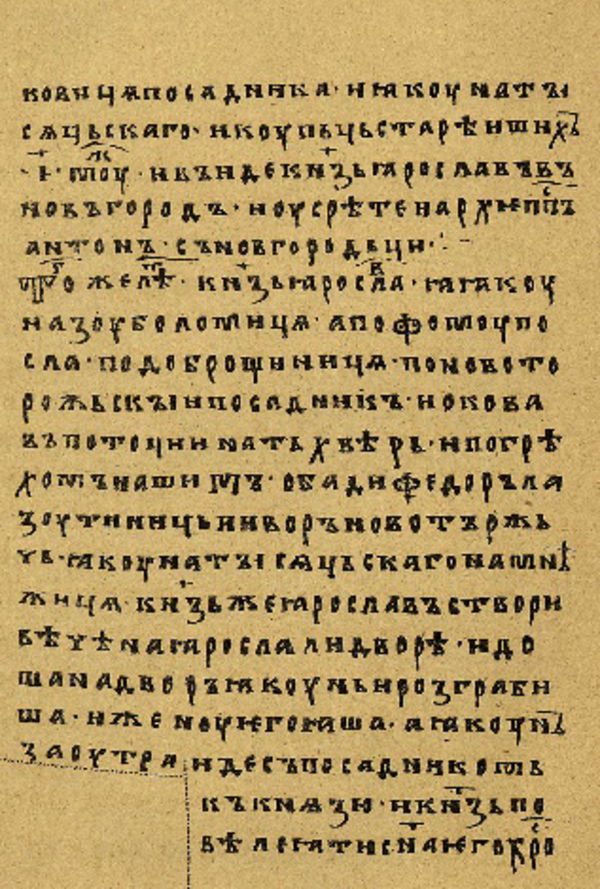 ковицѧпосадника·иꙗкоунатꙑ
сѧцьскаго·икоупьцьстарѣишихъ
·і·моу·ивънидекнѧзьꙗрославъвъ
новъгородъ·ноусрѣтенархиеппъ
антонъ·съновгородьци·
То желѣ·кнзьꙗросла·ꙗꙗкоу
назоуболомицѧ·апофомоупо
сла·подоброщиницѧ·поновото
рожьскꙑипосадникъ·иокова
въпоточиинатьхвѣрь·ипогрѣ
хомънашимъ·обадифедоръла
зоутиницьииворъновотържь
ць·ꙗкоунатꙑсѧцьскагонамнѣ
жицѧ·кнзьжеꙗрославъствори
вѣченаꙗрослалидворѣ·идо
шанадворъꙗкоуньирозграби
ша·иженоуѥгоꙗша·аꙗкоунъ
заоутра идесъпосадникомь
къкнѧзю·икнзьпо
велеꙗтиснаѥгохро